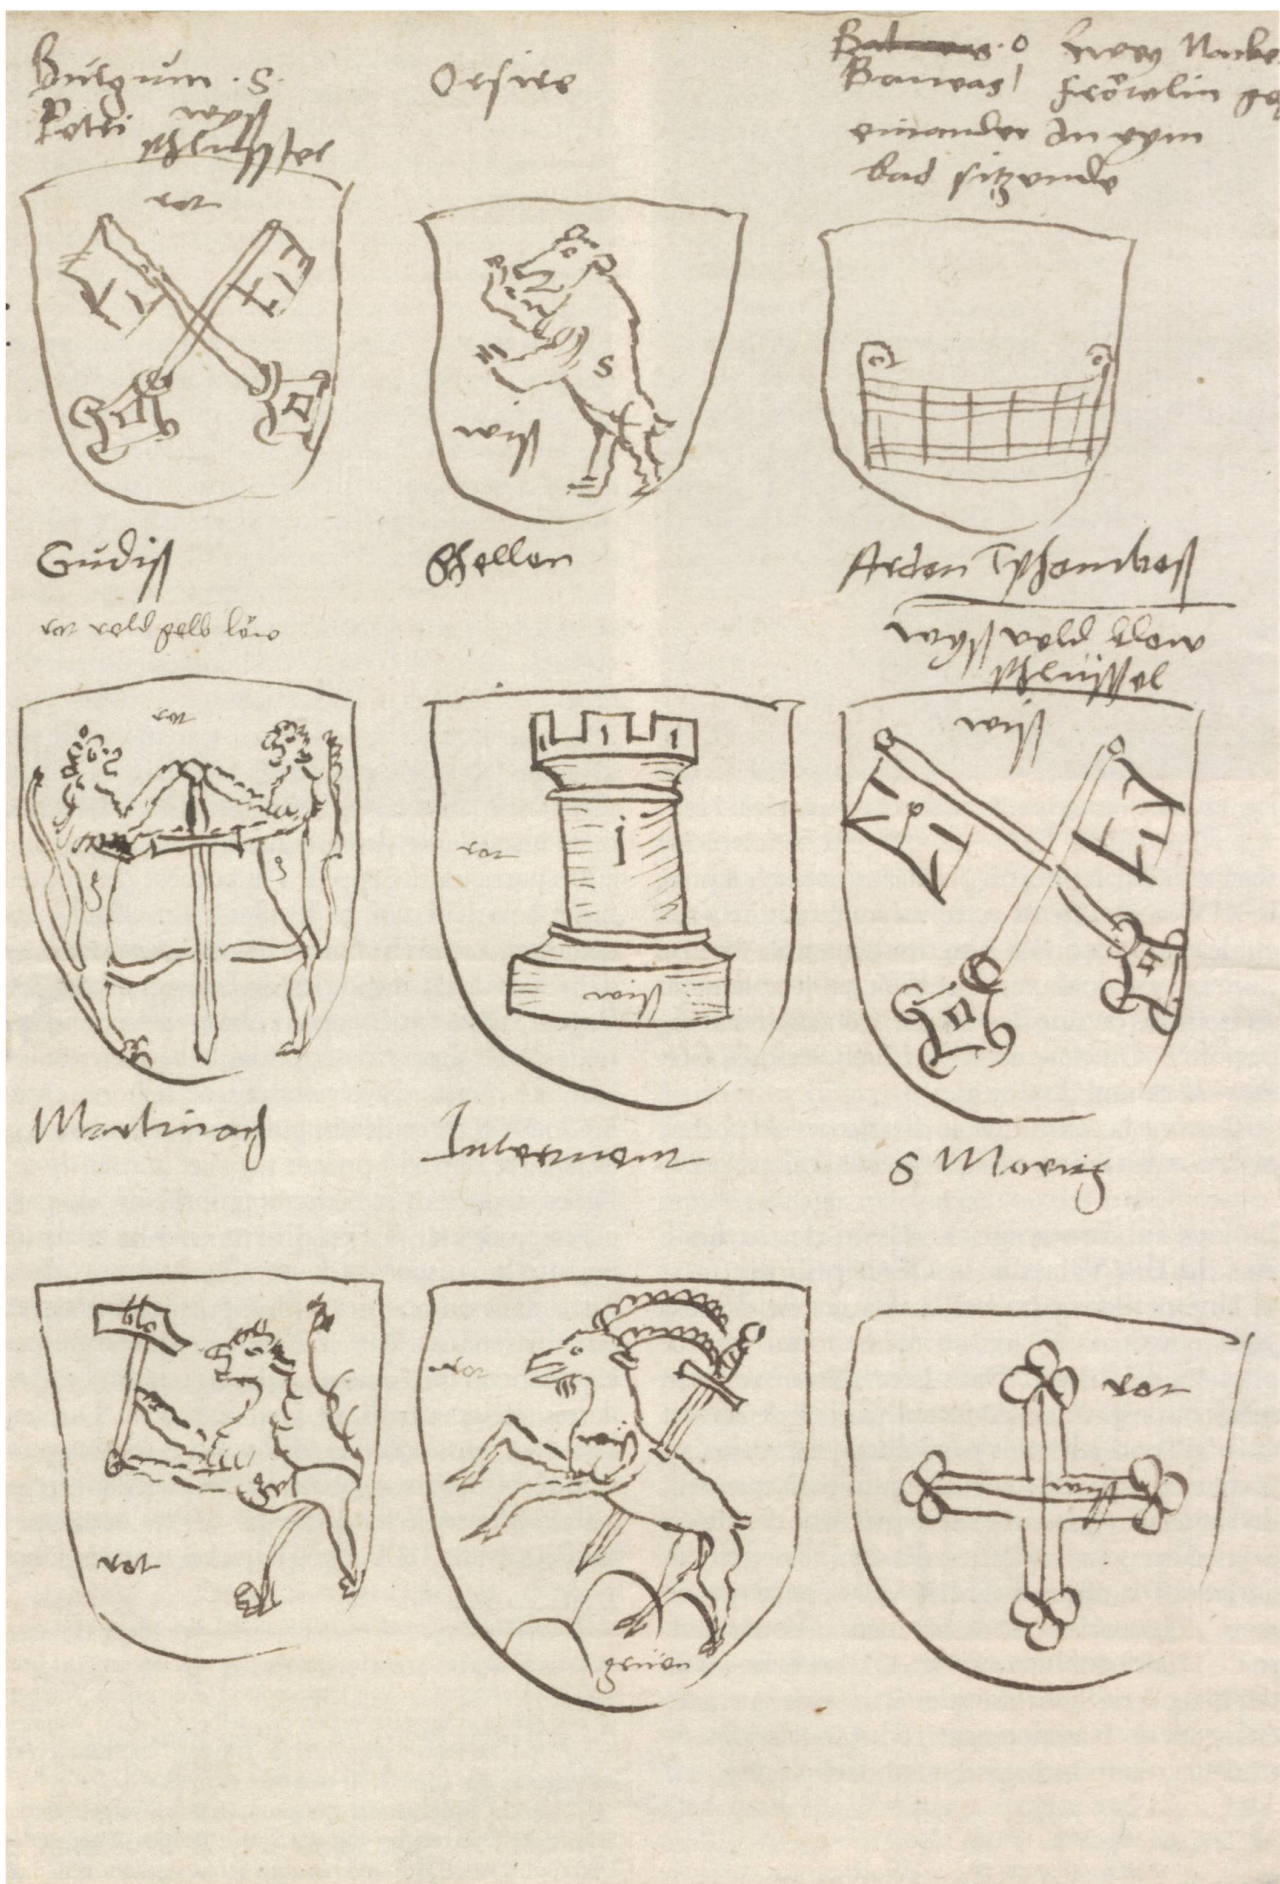 Burgum . S.
Petri wyss
schlüssel
rot
Orsire
S
wiss
O Zwey Nacke
Baneas fröwlin ge
einander In eym
bad sitzende
Gudiss
rot veld gelb löw
rot
Schellen
rot
wiss
Arden Tschambess
wyss veld blow
schlüssel
wiss
Martinach
rot
Intermont
rot
grüen
S Moritz
rot
wiss